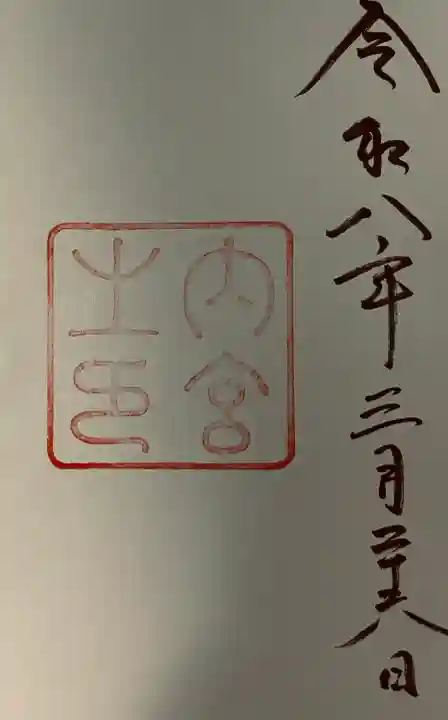 令和八年三月二十六日
内宮
之印